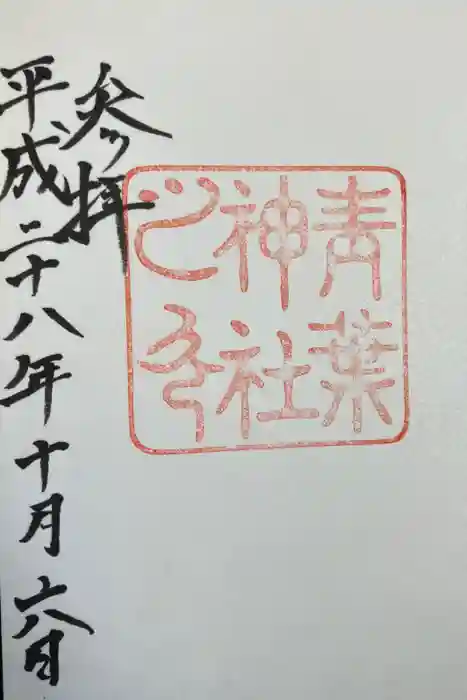 青葉
神社
之印
参拝
平成二十八年十月六日